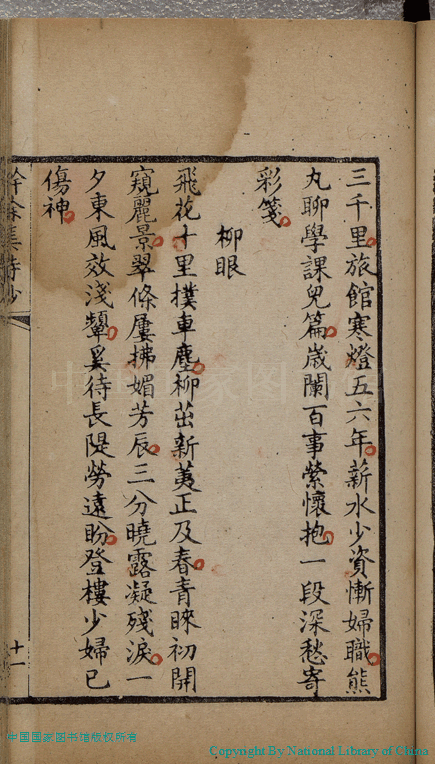 三千里旅館寒燈五六年薪水少資慚婦職熊
丸聊學課兒篇歲闌百事縈懷抱一段深愁寄
彩箋
柳眼
飛花十里撲車塵柳茁新荑正及春青睞初開
窺麗景翠條屢拂媚芳辰三分曉露凝殘淚一
夕東風效淺顰奚待長隄勞遠盼登樓少婦已
傷神
集詩鈔
十一
中国国家图书馆版权所有
Copyright By National Library of China